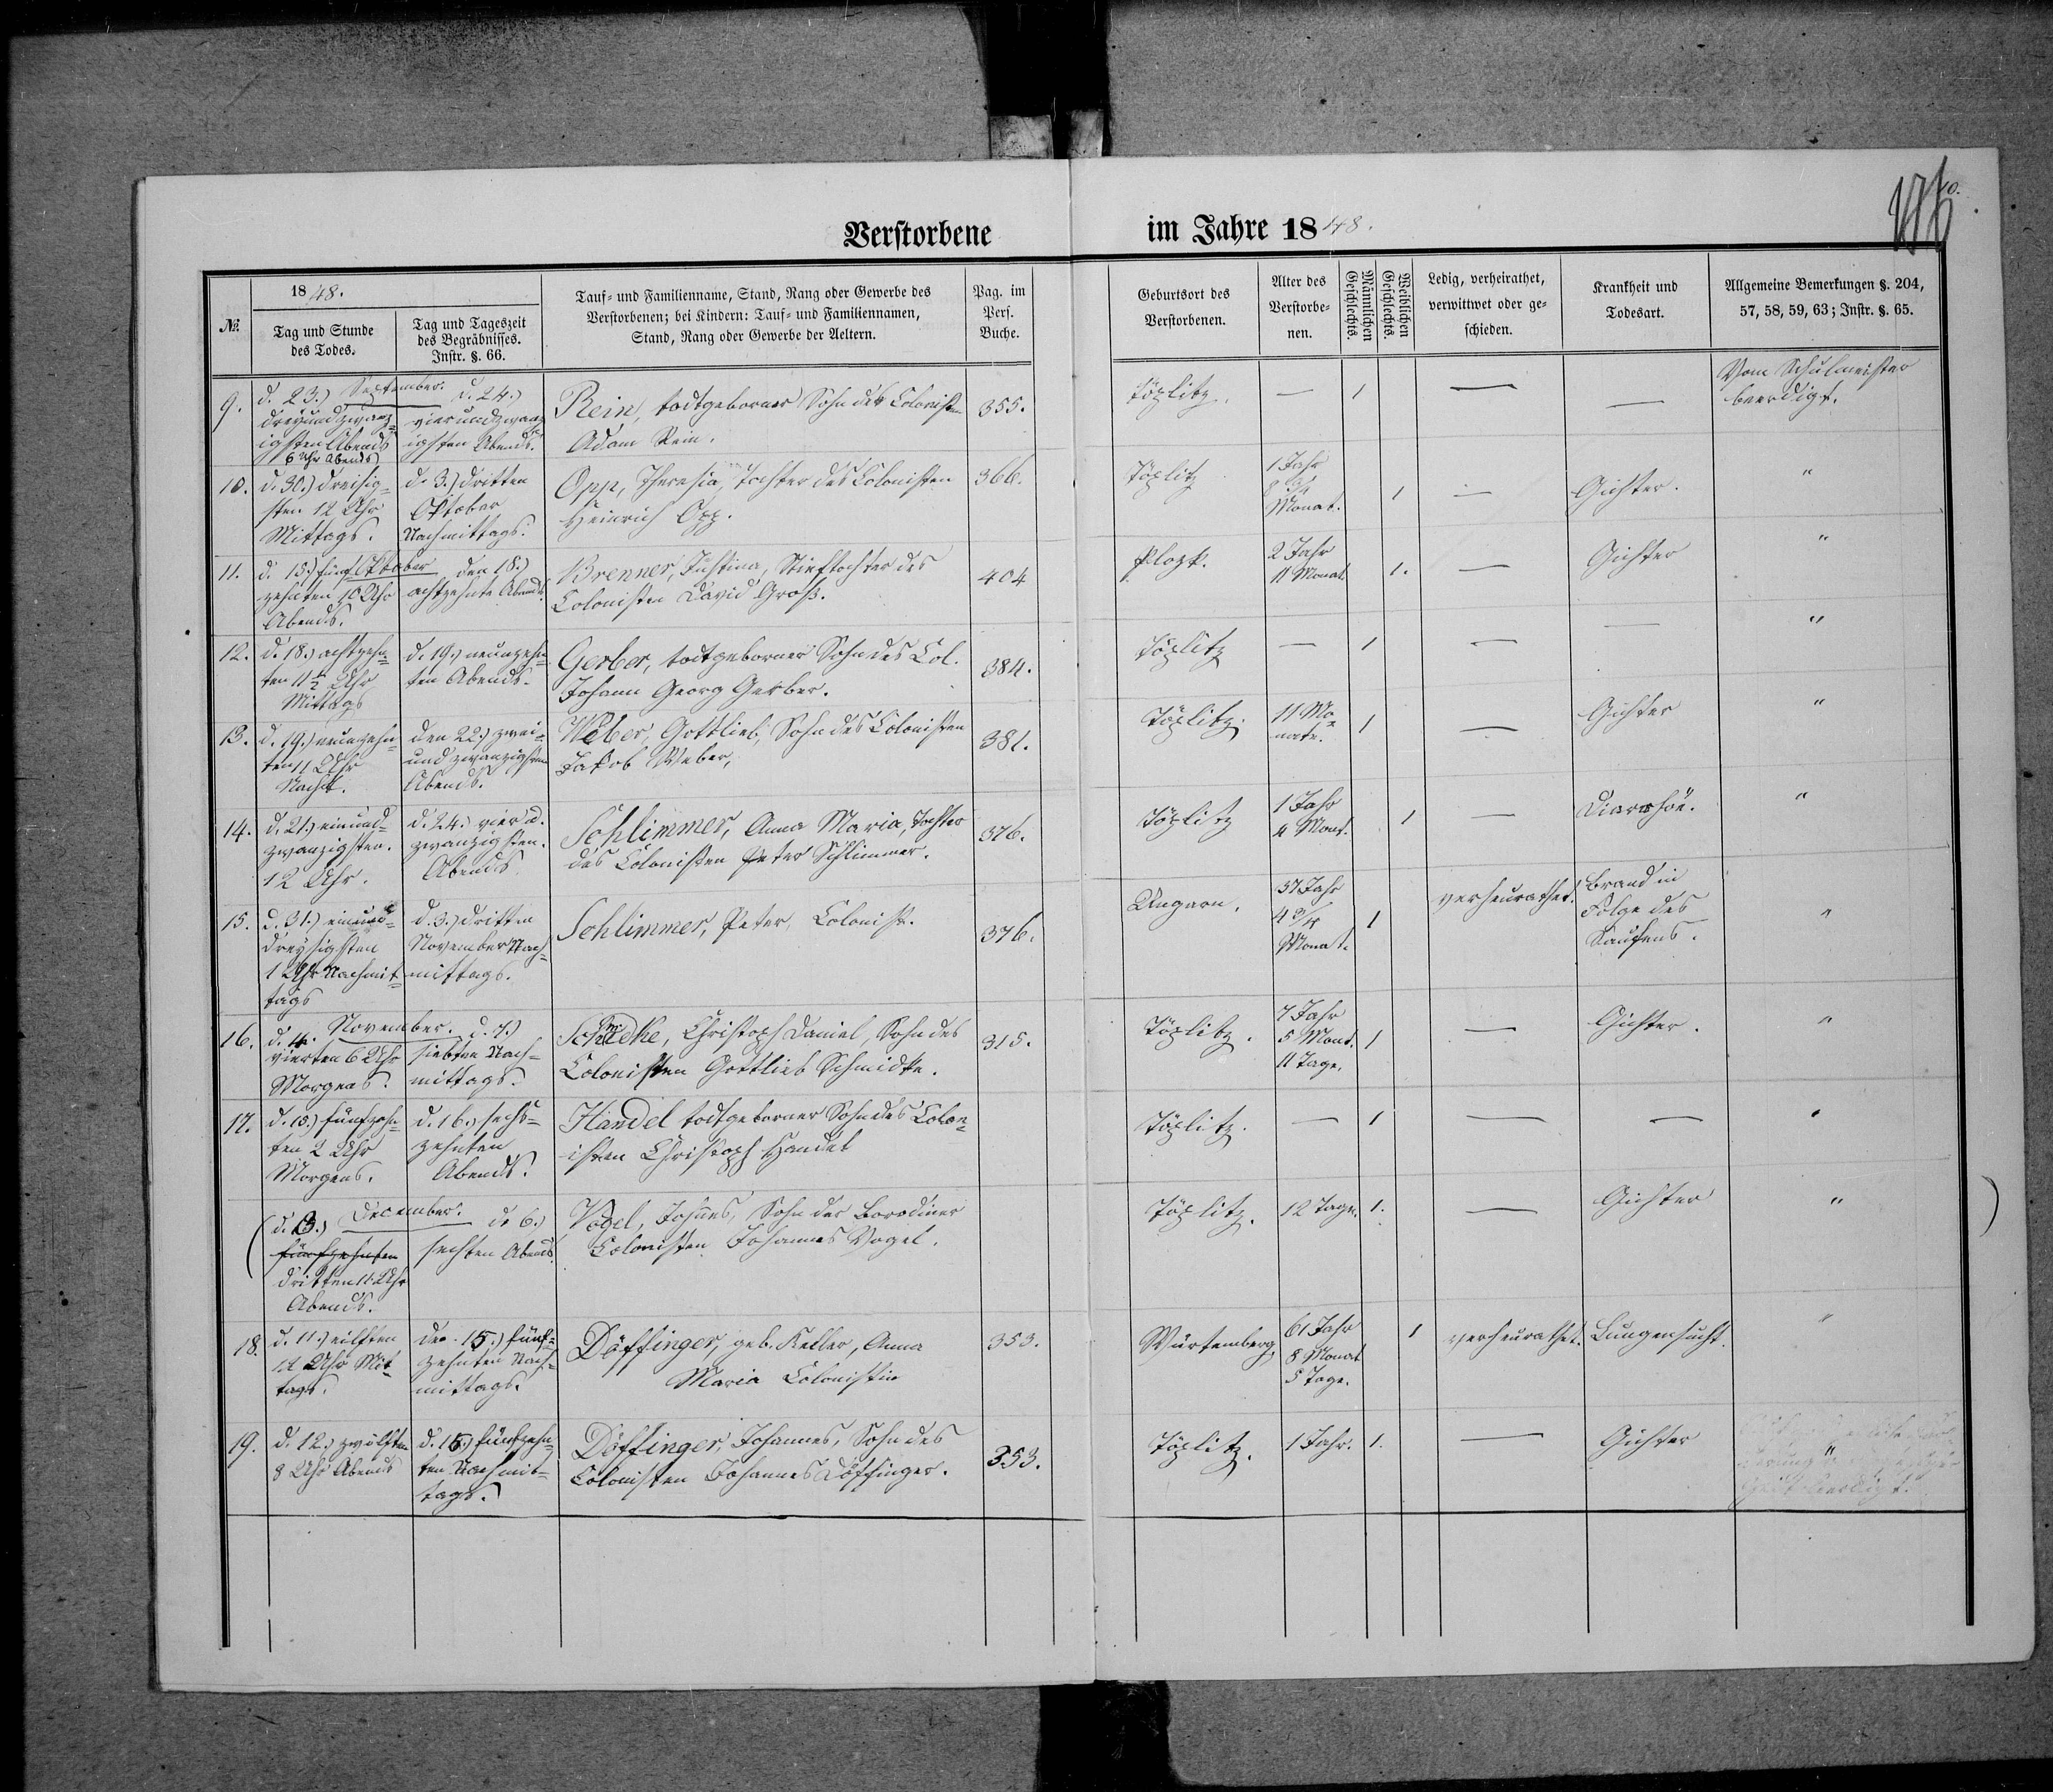 Verstorbene im Jahre 1848.
№.
1848.
Tag und Stunde
des Todes.
Tag und Tageszeit
des Begräbnisses.
Instr. §. 66.
Tauf- und Familienname, Stand, Rang oder Gewerbe des
Verstorbenen; bei Kindern: Tauf- und Familiennamen,
Stand, Rang oder Gewerbe der Aeltern.
Pag. im
Pers.
Buche.
Geburtsort des
Verstorbenen.
Alter des
Verstorbe-
nen.
Männlichen
Geschlechts.
Weiblichen
Geschlechts.
Ledig, verheirathet,
verwittwet oder ge-
schieden.
Krankheit und
Todesart.
Allgemeine Bemerkungen §. 204,
57, 58, 59, 63; Instr. §. 65.
September.
9.
d. 23.)
dreyundzwanz=
igsten Abends
6 Uhr Abends
d. 24.)
vierundzwanz
igsten Abends.
Rein, todtgeborner Sohn des Colonisten
Adam Rein.
355.
Töplitz.
—
1
—
—
Vom Schulmeister
beerdigt.
10.
d. 30.) dreisig=
sten 12 Uhr
Mittags.
d. 3.) dritten
Oktober
Nachmittags.
Opp, Theresia, Tochter des Colonisten
Heinrich Opp.
366.
Töplitz
1 Jahr
8 3/4
Monat.
1
—
Gichter.
"
Oktober
11.
d. 15.) fünf
zehnten 10 Uhr
Abends.
den 18.)
achtzehnte Abends
Brenner, Justina, Stieftochter des
Colonisten David Groß.
404
Plozk.
2 Jahr
11 Monat.
1.
—
Gichter
"
12.
d. 18.) achtzehn=
ten 11 1/2 Uhr
Mittags
d. 19.) neunzehn=
ten Abends.
Gerber, todtgeborner Sohn des Col.
Johann Georg Gerber.
384.
Töplitz
—
1
—
—
"
13.
d. 19.) neunzehn=
ten 11 Uhr
Nachts.
den 22.) zwei=
und zwanzigsten
Abends.
Weber, Gottlieb, Sohn des Colonisten
Jakob Weber,
381.
Töplitz.
11 Mo=
nate.
1
—
Gichter
"
14.
d. 21.) einund=
zwanzigsten.
12 Uhr.
d. 24.) vier u.
zwanzigsten.
Abends
Schlimmer, Anna Maria, Tochter
des Colonisten Peter Schlimmer.
376.
Töplitz
1 Jahr
4 Monat.
1
—
Diarrhöe.
"
15.
d. 31.) einund=
dreysigsten
1 Uhr Nachmit=
tags
d. 3.) dritten
November Nach=
mittags.
Schlimmer, Peter, Colonist.
376.
Ungarn.
37 Jahr
4 3/4
Monat.
1
verheurathet.
Brand in
Folge des
Saufens.
"
November.
16.
d. 4.
vierten 6 Uhr
Morgens.
d. 7.)
siebten Nach=
mittags.
Schmidke, Christoph Daniel, Sohn des
Colonisten Gottlieb Schmidke.
315.
Töplitz.
7 Jahr
5 Monat.
11 Tage.
1
—
Gichter.
"
17.
d. 15.) fünfzehn=
ten 2 Uhr
Morgens.
d. 16.) sechs=
zehnten
Abends.
Handel todtgeborner Sohn des Colon=
isten Christoph Handel
Töplitz.
—
1
—
—
"
December.
(d. 3.)
fünfzehnten
dritten 11 Uhr
Abends.
d. 6.)
sechsten Abends.
Vogel, Johannes, Sohn des Borodiner
Colonisten Johannes Vogel.
Töplitz.
12 Tage.
1.
—
Gichter
"
)
18.
d. 11.) eilften
12 Uhr Mit=
tags.
den 15.) fünf=
zehnten Nach=
mittags.
Döffinger, geb. Keller, Anna
Maria Colonistin
353.
Würtemberg.
61 Jahr
8 Monat
5 Tage.
1
verheurathet.
Lungensucht.
"
19.
d. 12.) zwölften
8 Uhr Abends
d. 15.) fünfzehn=
ten Nachmit=
tags.
Döffinger, Johannes, Sohn des
Colonisten Johannes Döffinger.
353.
Töplitz.
1 Jahr.
1.
—
Gichter
"